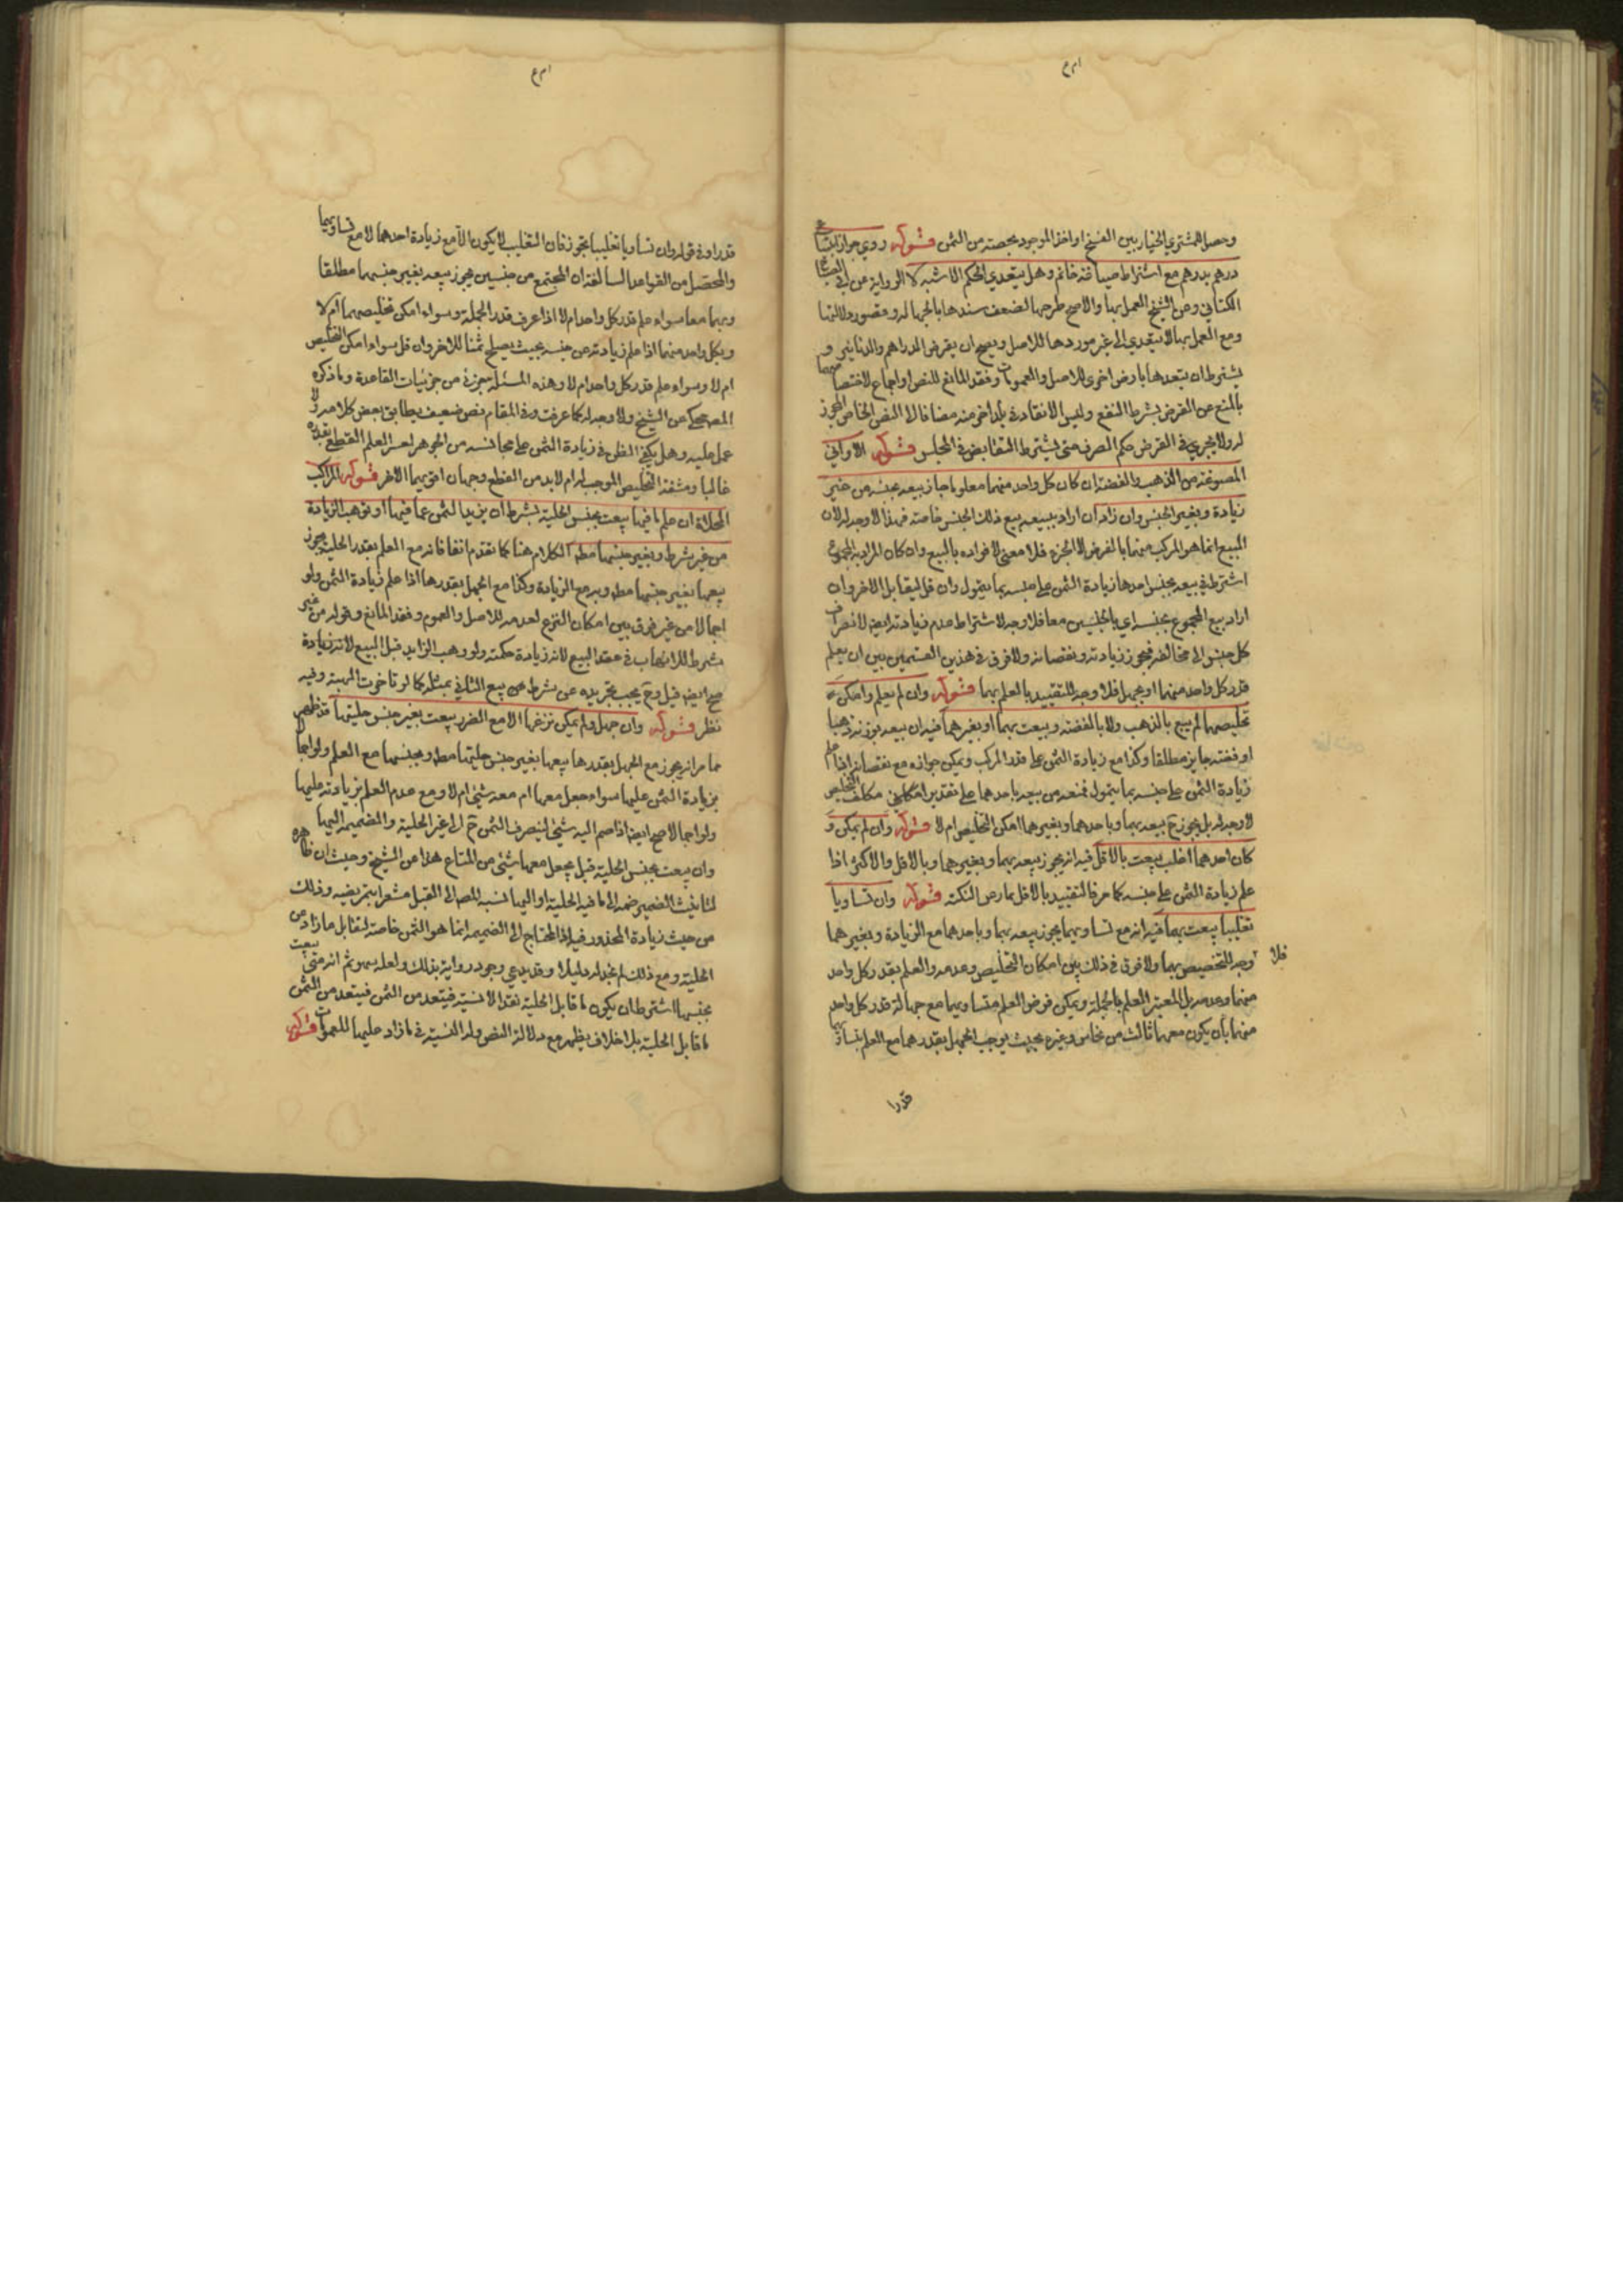 وحصل للمشتري الخيار بين الفسخ او اخذ الموجود بحصته من الثمن قوله وروي جواز ابتياع
درهم بدرهم مع اشتراط صياغة خاتم وهل يتعدي الحكم الاشبه لا الرواية عن ابي الصباح
الكناني وعن الشيخ العمل بها والاصح طرحها لضعف سندها بالجهالة وقصور دلالتها
ومع العمل بها لا يتعدي الى غير موردها للاصل ويصح ان يقرض الدراهم والدنانير و
يشترط ان ينقدها بارض اخرى للاصل والعمومات وفقد المانع للنص او اجماع لاختصاصهما
بالمنع عن القرض بشرط النفع وليس الانقاد في بلد اخر منه مضافا لا النص الخاص المجوز
له ولا يجري في القرض حكم الصرف حتى يشترط التقابض في المجلس قوله الاواني
المصوغة من الذهب والفضة ان كان كل واحد منهما معلوما جاز بيعه بجنسه من غير
زيادة وبغير الجنس وان زاد ان اراد ببيعه بيع ذلك الجنس خاصة فهذا لا وجه له لان
المبيع انما هو المركب منهما بالفرض لا الجزء فلا معنى لافراده بالبيع وان كان المراد بيع المجموع
اشترط في بيعه بجنس احدها زيادة الثمن على جنسه بما يتمول وان قل ليقابل الاخر وان
اراد بيع المجموع بجنسه اي بالجنسين معا فلا وجه لاشتراط عدم زيادته ايضا لانصراف
كل جنس الى مخالفه فيجوز زيادته ونقصانه ولا فرق في هذين القسمين بين ان يعلم
قدر كل واحد منهما او يجهل فلا وجه للتقييد بالعلم بهما قوله وان لم يعلم وامكن
تخليصهما لم يبع بالذهب ولا بالفضة وبيعت بهما او بغيرهما فيه ان بيعه بوزنه ذهبا
او فضة جايز مطلقا وكذا مع زيادة الثمن على قدر المركب ويمكن جوازه مع نقصانه اذا علم
زيادة الثمن على جنسه بما يتمول فمنعه من بيعه باحدهما على تقدير امكان التخليص
لا وجه له بل يجوز ح بيعه بهما وباحدهما وبغيرهما امكن التخليص ام لا قوله وان لم يمكن و
كان احدهما اغلب بيعت بالاقل فيه انه يجوز بيعه بهما وبغيرهما وبالاقل والاكثر اذا
علم زيادة الثمن على جنسه كما مر فالتقييد بالاقل عار من النكتة قوله وان تساويا
تغليبا بيعت بهما فيه انه مع تساويهما يجوز بيعه بهما وباحدهما مع الزيادة وبغيرهما
فلا وجه للتخصيص بهما ولا فرق في ذلك بين امكان التخليص وعدمه والعلم بقدر كل واحد
منهما وعدمه بل المعتبر العلم بالجملة ويمكن فرض العلم بتساويهما مع جهالة قدر كل واحد
منهما بان يكون معهما ثالث من نحاس وغيره بحيث يوجب الجهل بقدرهما مع العلم بتساويهما
قدرا
قدرا وفي قوله وان تساويا تغليبا تجوز فان التغليب لا يكون الا مع زيادة احدهما لا مع تساويهما
والمحصل من القواعد السالفة ان المجتمع من جنسين يجوز بيعه بغير جنسهما مطلقا
وبهما معا سواء علم قدر كل واحد ام لا اذا عرف قدر الجملة وسواء امكن تخليصهما ام لا
وبكل واحد منهما اذا علم زيادته عن جنسه بحيث يصلح ثمنا للاخر وان قل سواء امكن التخليص
ام لا وسواء علم قدر كل واحد ام لا وهذه المسئلة جزئي من جزئيات القاعدة وما ذكره
المصر محكي عن الشيخ ولا وجه له كما عرفت وفي المقام نص ضعيف يطابق بعض كلامه ولا
عمل عليه وهل يكفي الظن في زيادة الثمن على مجانسه من الجوهر لعسر العلم القطعي بقدره
غالبا ومشقة التخليص الموجب له ام لا بد من القطع وجهان اقربهما الاخر قوله المراكب
المحلاة ان علم ما فيها بيعت بجنس الحلية بشرط ان يزيد الثمن عما فيها او توهب الزيادة
من غير شرط وبغير جنسها مطه الكلام هنا كما تقدم انفا فانه مع العلم بقدر الحلية يجوز
بيعها بغير جنسها مطه وبه مع الزيادة وكذا مع الجهل بقدرها اذا علم زيادة الثمن ولو
اجمالا من غير فرق بين امكان النزع لعدمه للاصل والعموم وفقد المانع وقوله من غير
شرط للاتهاب في عقد البيع لانه زيادة حكمية ولو وهب الزايد قبل البيع لانه زيادة
صح ايضا قيل وح يجب تجريده عن شرط بيع الثاني بمثله كما لو تاخرت الهبة وفيه
نظر قوله وان جهل ولم يمكن نزعها الا مع الضرر بيعت بغير جنس حليتها قد ظهر
مما مر انه يجوز مع الجهل بقدرها بيعها بغير جنس حليتها مطه وبجنسها مع العلم ولو اجمالا
بزيادة الثمن عليها سواء جعل معها ام معه شئ ام لا ومع عدم العلم بزيادته عليها
ولو اجمالا صح ايضا اذا ضم اليه شئ لينصرف الثمن ح الى غير الحلية والضميمة اليها
وان بيعت بجنس الحلية قيل يجعل معها شئ من المتاع هذا عن الشيخ وحيث ان ظاهره
لتانيث الضمير ضمه الى ما فيه الحلية او اليها نسبه المصر الى القيل مشعرا بتمريضه وذلك
من حيث زيادة المحذور فيه اذ المحتاج الى الضميمة انما هو الثمن خاصة لتقابل ما زاد من
الحلية ومع ذلك لم نجد له دليلا وقد يدعي وجود رواية بذلك ولعله سهو ثم انه متى بيعت
بجنسها اشترط ان يكون ما قابل الحلية نقدا لا نسية فيتعد من الثمن
ما قابل الحلية بلا خلاف يظهر مع دلالة النص وله النسية في ما زاد عليها للعمومات قوله